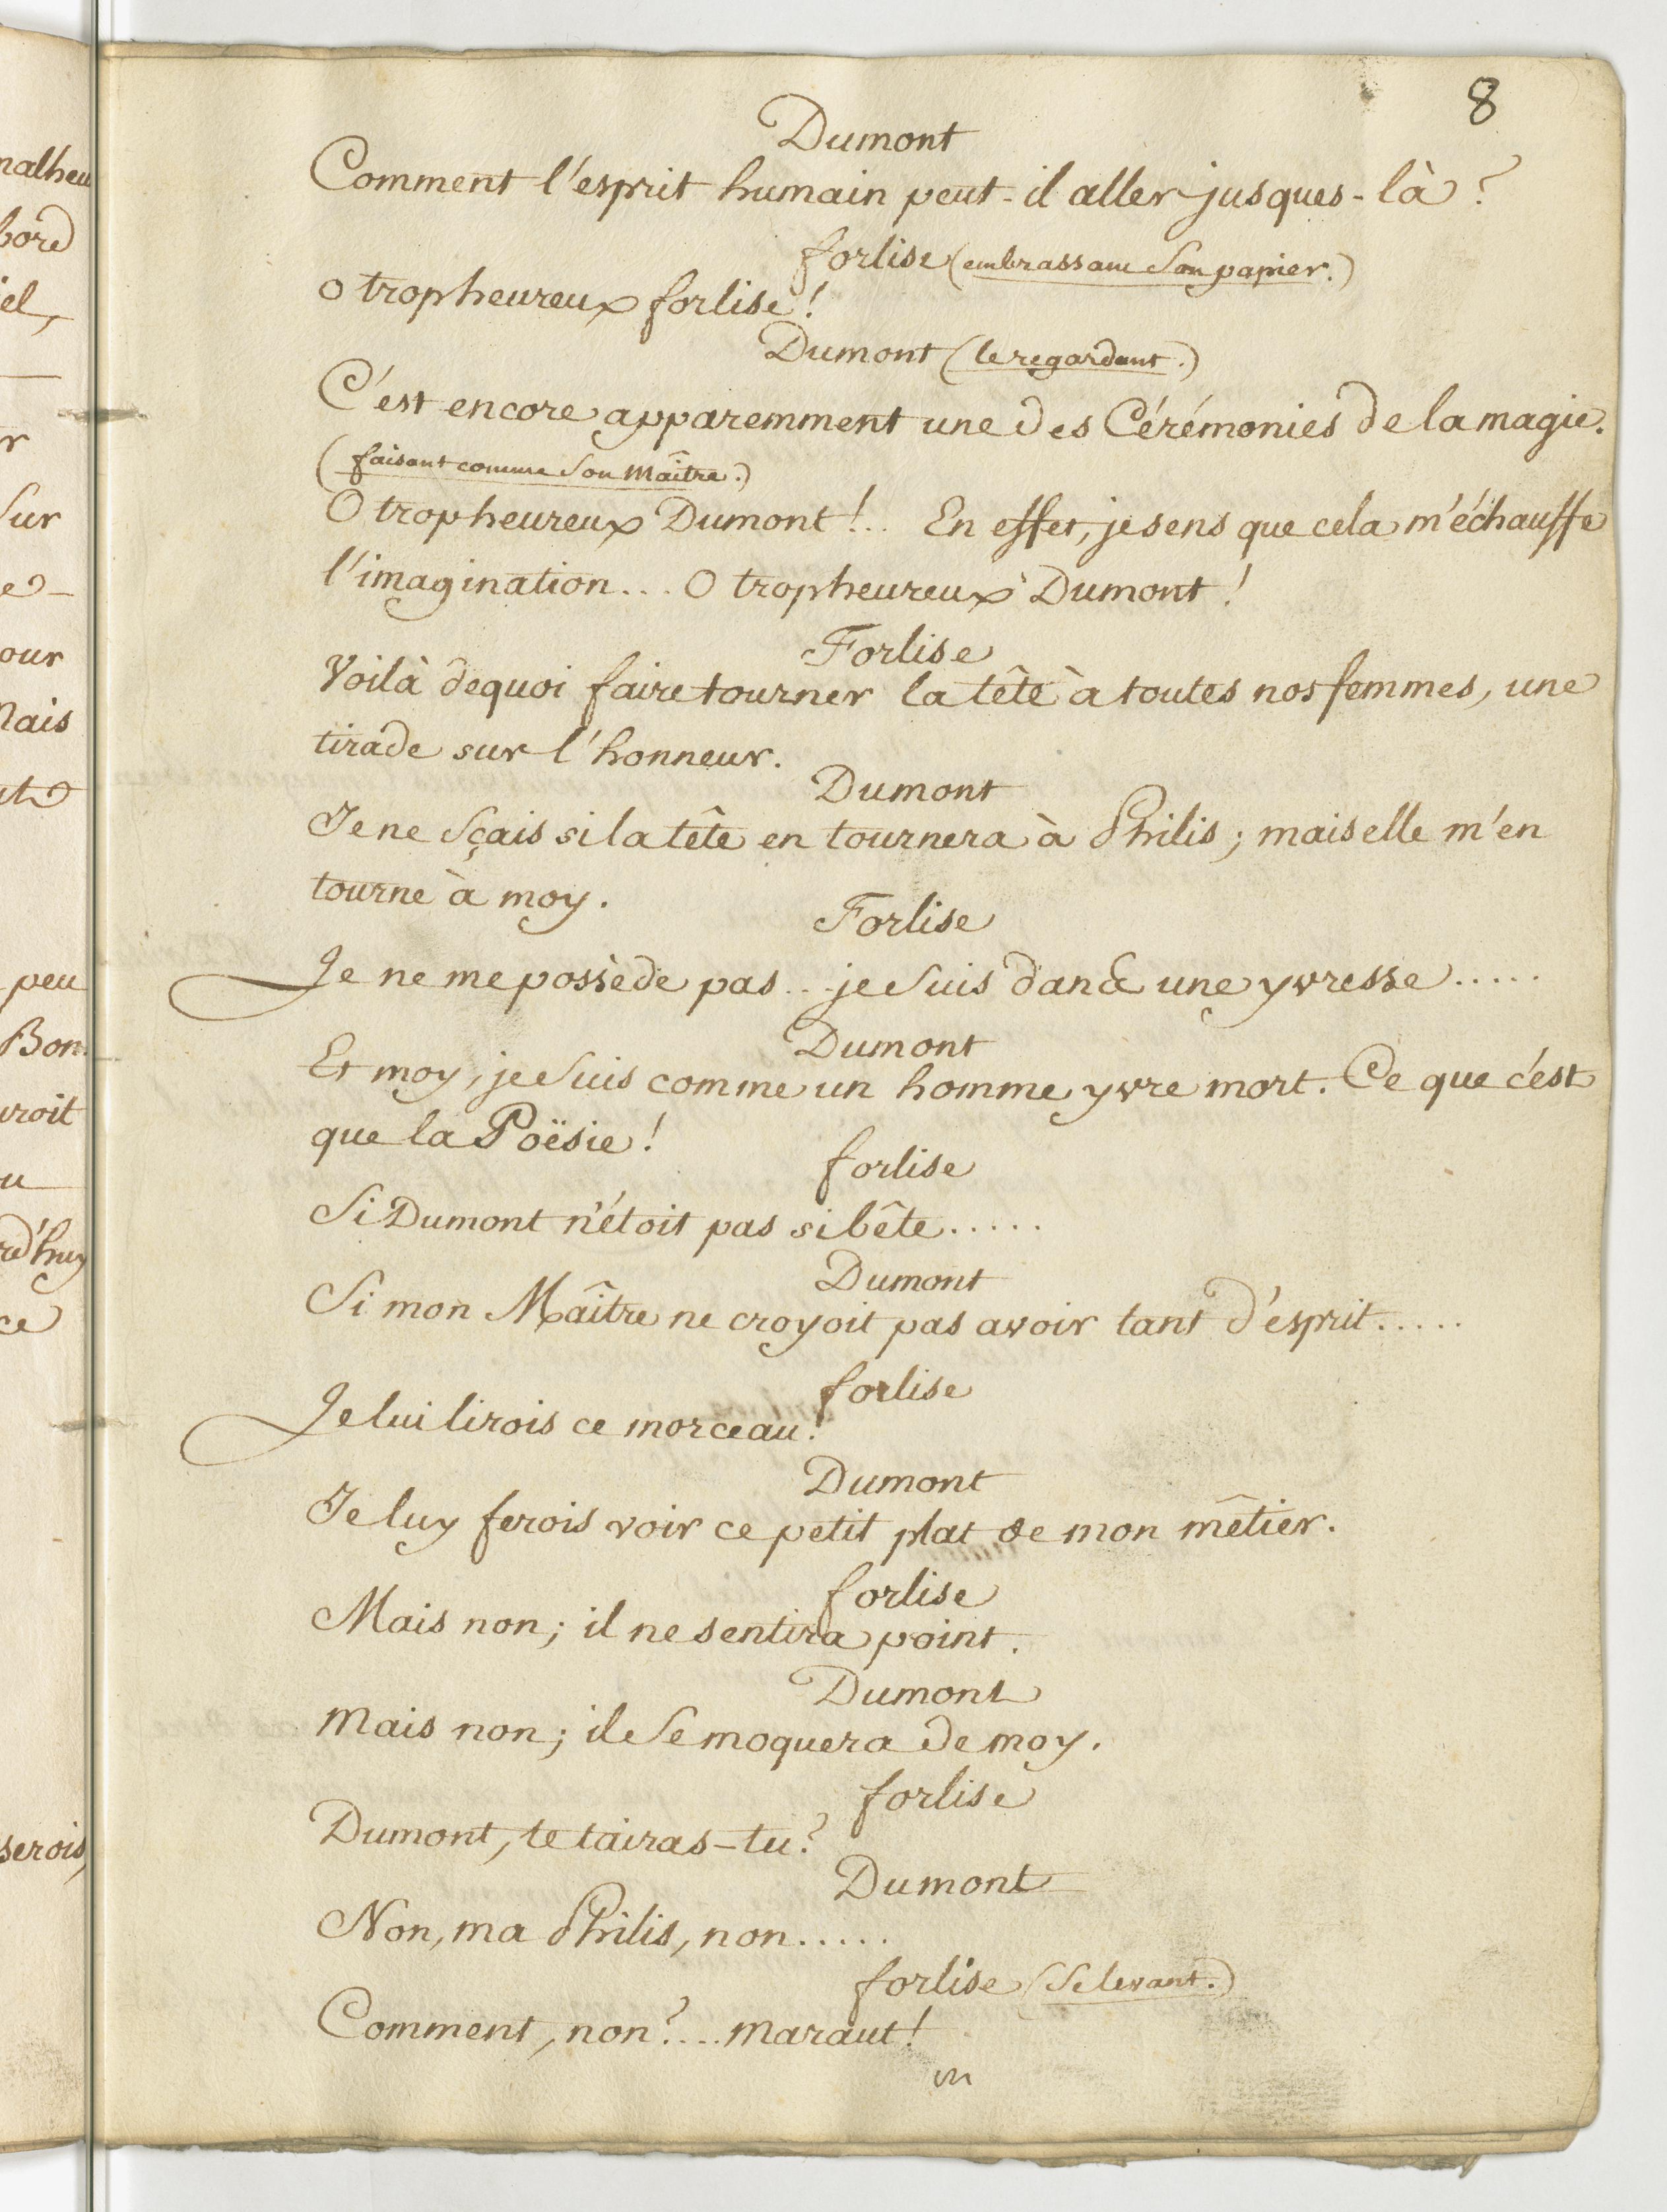 8
Dumont
Comment l'esprit humain peut-il aller jusques-là ?
forlise (embrassant son papier.)
o trop heureux forlise !
Dumont (le regardant.)
C'est encore apparemment une des Cérémonies de la magie.
(faisant comme son Maître.)
O trop heureux Dumont !.. En effet, je sens que cela m'échauffe
l'imagination... O trop heureux Dumont !
Forlise
Voilà dequoi faire tourner la tête à toutes nos femmes, une
tirade sur l'honneur.
Dumont
Je ne sçais si la tête en tournera à Philis ; mais elle m'en
tourne à moy.
Forlise
Je ne me possède pas... je suis dans une yvresse.....
Dumont
Et moy, je suis comme un homme yvre mort. Ce que c'est
que la Poësie !
forlise
Si Dumont n'étoit pas si bête.....
Dumont
Si mon Maître ne croyoit pas avoir tant d'esprit.....
forlise
Je lui lirois ce morceau !
Dumont
Je luy ferois voir ce petit plat de mon mêtier.
forlise
Mais non ; il ne sentira point.
Dumont
Mais non ; il se moquera de moy.
forlise
Dumont, te tairas-tu ?
Dumont
Non, ma Philis, non.....
forlise (se levant.)
Comment, non ?.... maraut !